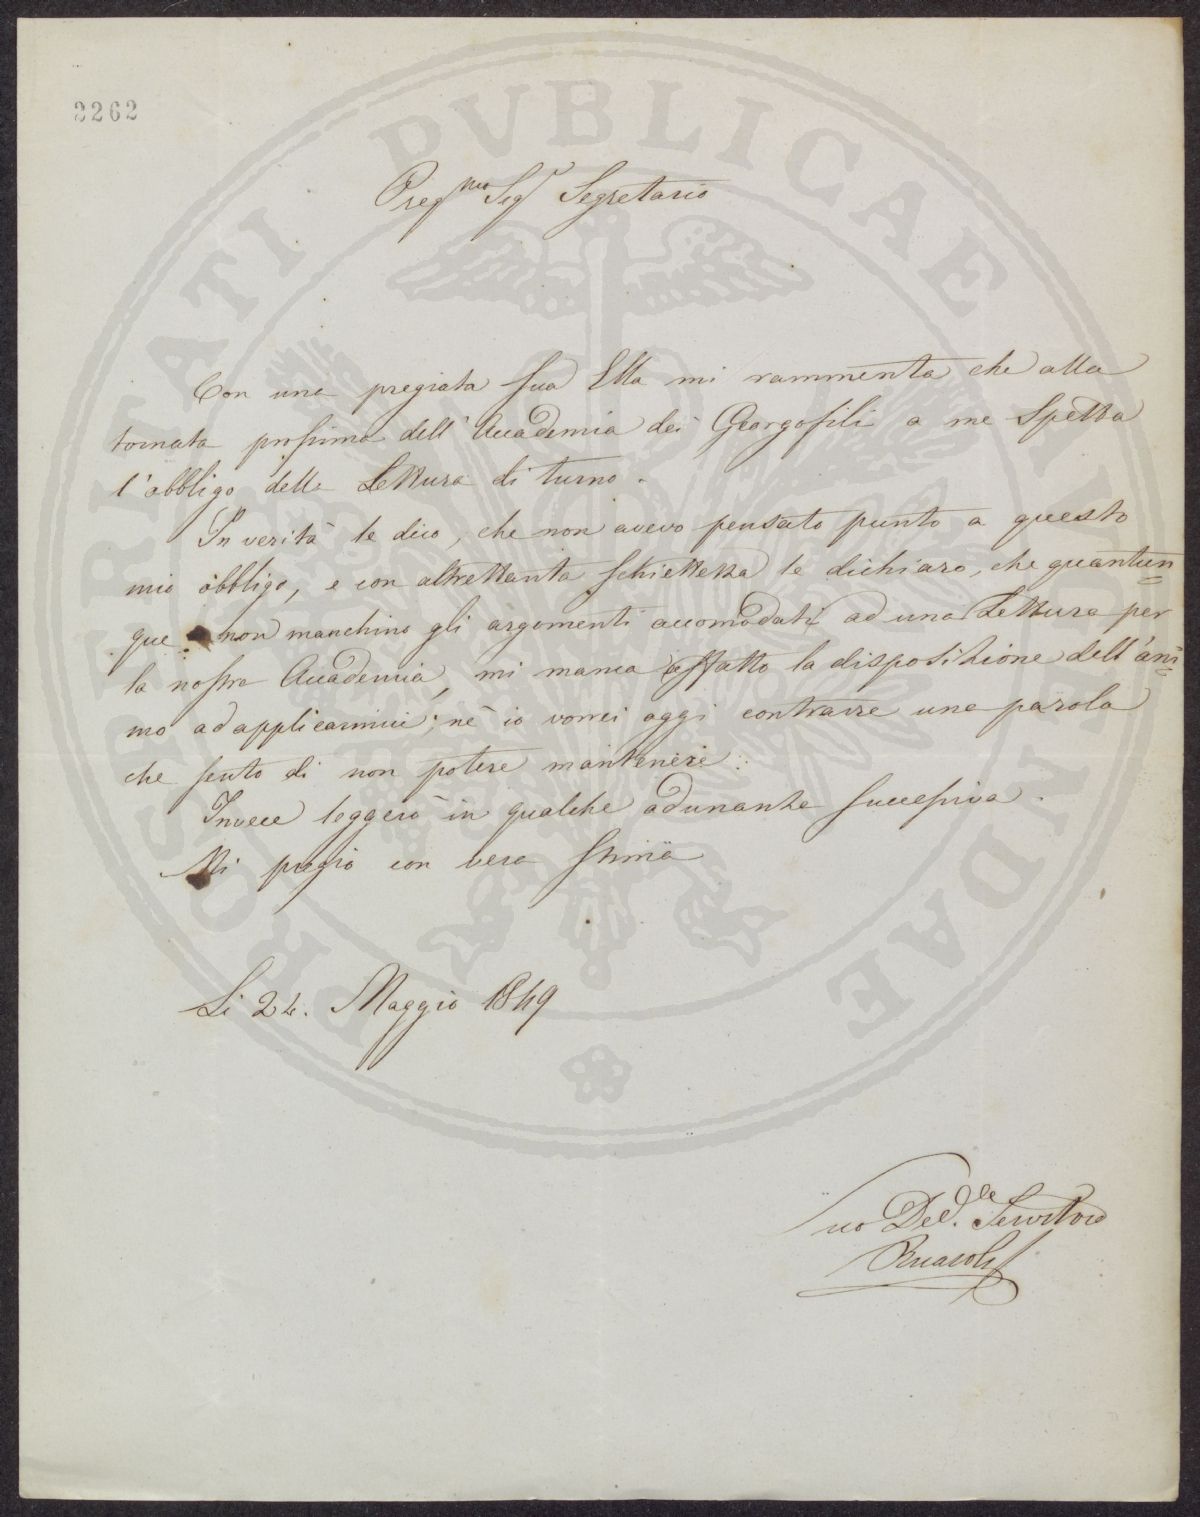 2262
PROSPERITATI PVBLICAE AVGENDAE
Preg.mo Sig.r Segretario
Con una pregiata Sua Ella mi rammenta che alla
tornata prossima dell'Accademia dei Georgofili a me spetta
l'obbligo della Lettura di turno.
In verità le dico, che non avevo pensato punto a questo
mio obbligo, e con altrettanta schiettezza le dichiaro, che quantun=
que non manchino gli argomenti accomodati ad una Lettura per
la nostra Accademia, mi manca affatto la disposizione dell'ani=
mo ad applicarmici; nè io vorrei oggi contrarre una parola
che sento di non potere mantenere.
Invece leggerò in qualche adunanza successiva.
Mi pregio con vera stima
Li 24. Maggio 1849
Suo Dev.le Servitore